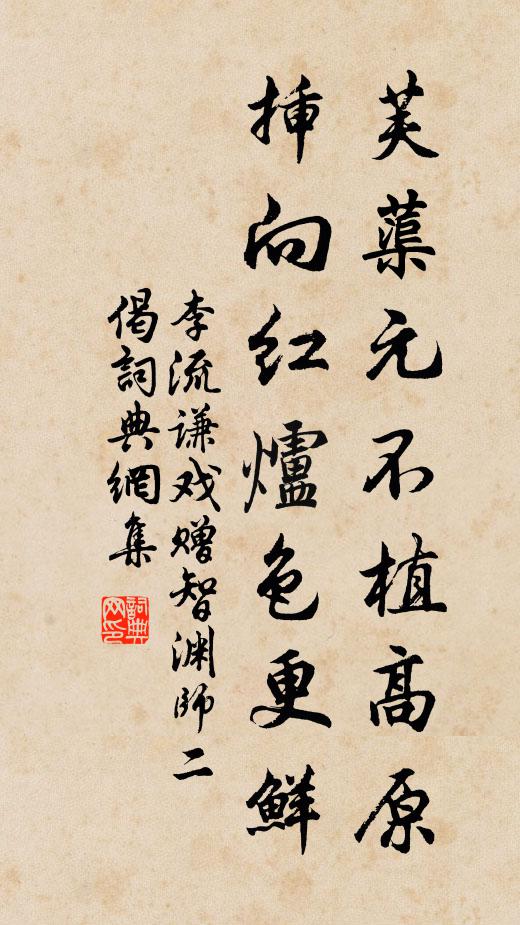 芙蕖元不植高原
挿向红爐色更鮮
李流谦戏赠智渊師二
偈詞典網集
詞典
网印